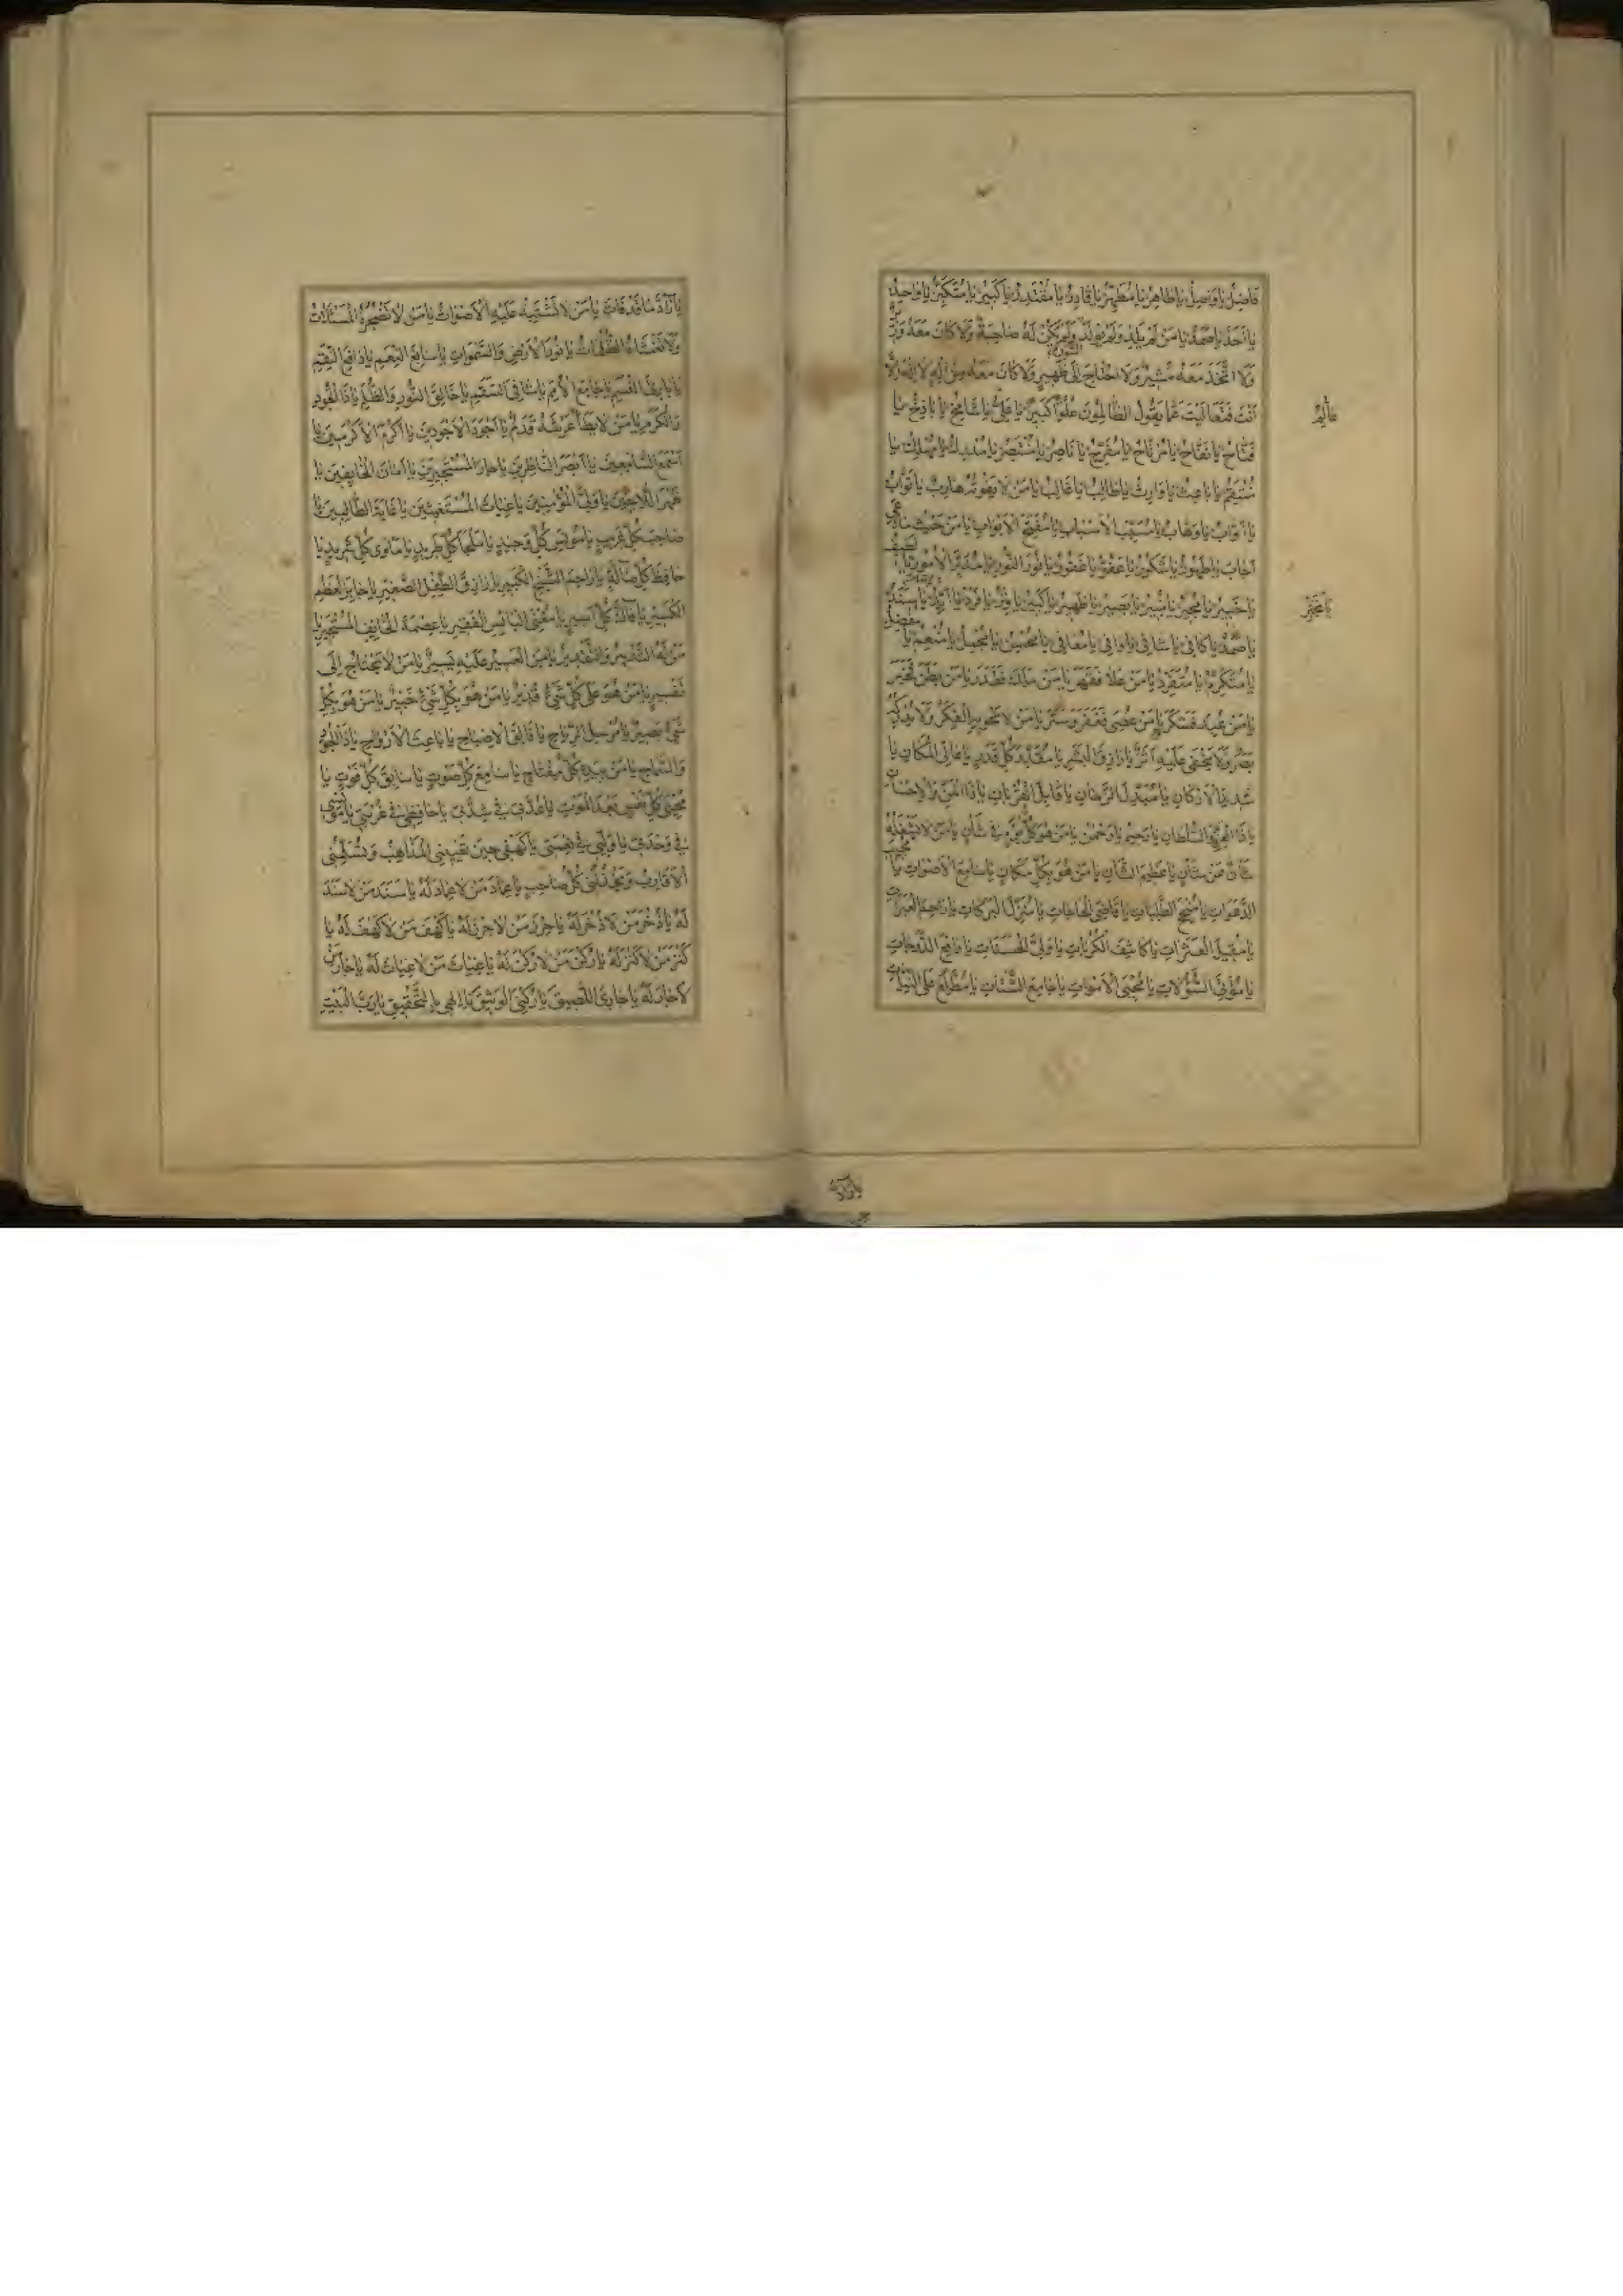 فَاضِلُ يَا وَاصِلُ يَا طَاهِرُ يَا مُطَهِّرُ يَا قَادِرُ يَا مُقْتَدِرُ يَا كَبِيرُ يَا مُتَكَبِّرُ يَا وَاحِدُ
يَا اَحَدُ يَا صَمَدُ يَا مَنْ لَمْ يَلِدْ وَلَمْ يُولَدْ وَلَمْ يَكُنْ لَهُ صَاحِبَةٌ وَلَا كَانَ مَعَهُ وَزِيرٌ
وَلَا اتَّخَذَ مَعَهُ مُشِيرًا وَلَا احْتَاجَ اِلَى ظَهِيرٍ وَلَا كَانَ مَعَهُ مِنْ اِلٰهٍ لَا اِلٰهَ اِلَّا
اَنْتَ فَتَعَالَيْتَ عَمَّا يَقُولُ الظَّالِمُونَ عُلُوًّا كَبِيرًا يَا عَلِيُّ يَا شَامِخُ يَا بَاذِخُ يَا
فَتَّاحُ يَا نَفَّاحُ يَا مُرْتَاحُ يَا مُفَرِّجُ يَا نَاصِرُ يَا مُنْتَصِرُ يَا مُدْرِكُ يَا مُهْلِكُ يَا
مُنْتَقِمُ يَا بَاعِثُ يَا وَارِثُ يَا طَالِبُ يَا غَالِبُ يَا مَنْ لَا يَفُوتُهُ هَارِبٌ يَا تَوَّابُ
يَا اَوَّابُ يَا وَهَّابُ يَا مُسَبِّبَ الْاَسْبَابِ يَا مُفَتِّحَ الْاَبْوَابِ يَا مَنْ حَيْثُ مَا دُعِيَ
اَجَابَ يَا طَهُورُ يَا شَكُورُ يَا عَفُوُّ يَا غَفُورُ يَا نُورَ النُّورِ يَا مُدَبِّرَ الْاُمُورِ يَا لَطِيفُ
يَا خَبِيرُ يَا مُجِيرُ يَا مُنِيرُ يَا بَصِيرُ يَا ظَهِيرُ يَا كَبِيرُ يَا وِتْرُ يَا فَرْدُ يَا اَبَدُ يَا سَنَدُ
يَا صَمَدُ يَا كَافِي يَا شَافِي يَا وَافِي يَا مُعَافِي يَا مُحْسِنُ يَا مُجْمِلُ يَا مُنْعِمُ يَا مُفْضِلُ
يَا مُتَكَرِّمُ يَا مُتَفَرِّدُ يَا مَنْ عَلَا فَقَهَرَ يَا مَنْ مَلَكَ فَقَدَرَ يَا مَنْ بَطَنَ فَخَبَرَ
يَا مَنْ عُبِدَ فَشَكَرَ يَا مَنْ عُصِيَ فَغَفَرَ وَسَتَرَ يَا مَنْ لَا تَحْوِيهِ الْفِكَرُ وَلَا يُدْرِكُهُ
بَصَرٌ وَلَا يَخْفَى عَلَيْهِ اَثَرٌ يَا رَازِقَ الْبَشَرِ يَا مُقَدِّرَ كُلِّ قَدَرٍ يَا عَالِيَ الْمَكَانِ يَا
شَدِيدَ الْاَرْكَانِ يَا مُبَدِّلَ الزَّمَانِ يَا قَابِلَ الْقُرْبَانِ يَا ذَا الْمَنِّ وَالْاِحْسَانِ
يَا ذَا الْعِزَّةِ وَالسُّلْطَانِ يَا رَحِيمُ يَا رَحْمٰنُ يَا مَنْ هُوَ كُلَّ يَوْمٍ فِي شَاْنٍ يَا مَنْ لَا يَشْغَلُهُ
شَاْنٌ عَنْ شَاْنٍ يَا عَظِيمَ الشَّاْنِ يَا مَنْ هُوَ بِكُلِّ مَكَانٍ يَا سَامِعَ الْاَصْوَاتِ يَا مُجِيبَ
الدَّعَوَاتِ يَا مُنْجِحَ الطَّلِبَاتِ يَا قَاضِيَ الْحَاجَاتِ يَا مُنْزِلَ الْبَرَكَاتِ يَا رَاحِمَ الْعَبَرَاتِ
يَا مُقِيلَ الْعَثَرَاتِ يَا كَاشِفَ الْكُرُبَاتِ يَا وَلِيَّ الْحَسَنَاتِ يَا رَافِعَ الدَّرَجَاتِ
يَا مُؤْتِيَ السُّؤُلَاتِ يَا مُحْيِيَ الْاَمْوَاتِ يَا جَامِعَ الشَّتَاتِ يَا مُطَّلِعُ عَلَى النِّيَّاتِ
يَا رَادَّ
يَا رَادَّ مَا قَدْ فَاتَ يَا مَنْ لَا تَشْتَبِهُ عَلَيْهِ الْاَصْوَاتُ يَا مَنْ لَا تُضْجِرُهُ الْمَسْئَلَاتُ
وَلَا تَغْشَاهُ الظُّلُمَاتُ يَا نُورَ الْاَرْضِ وَالسَّمٰوَاتِ يَا سَابِغَ النِّعَمِ يَا دَافِعَ النِّقَمِ
يَا بَارِئَ النَّسَمِ يَا جَامِعَ الْاُمَمِ يَا شَافِيَ السَّقَمِ يَا خَالِقَ النُّورِ وَالظُّلَمِ يَا ذَا الْجُودِ
وَالْكَرَمِ يَا مَنْ لَا يَطَأُ عَرْشَهُ قَدَمٌ يَا اَجْوَدَ الْاَجْوَدِينَ يَا اَكْرَمَ الْاَكْرَمِينَ يَا
اَسْمَعَ السَّامِعِينَ يَا اَبْصَرَ النَّاظِرِينَ يَا جَارَ الْمُسْتَجِيرِينَ يَا اَمَانَ الْخَائِفِينَ يَا
ظَهْرَ اللَّاجِينَ يَا وَلِيَّ الْمُؤْمِنِينَ يَا غِيَاثَ الْمُسْتَغِيثِينَ يَا غَايَةَ الطَّالِبِينَ يَا
صَاحِبَ كُلِّ غَرِيبٍ يَا مُونِسَ كُلِّ وَحِيدٍ يَا مَلْجَأَ كُلِّ طَرِيدٍ يَا مَاْوٰى كُلِّ شَرِيدٍ يَا
حَافِظَ كُلِّ ضَالَّةٍ يَا رَاحِمَ الشَّيْخِ الْكَبِيرِ يَا رَازِقَ الطِّفْلِ الصَّغِيرِ يَا جَابِرَ الْعَظْمِ
الْكَسِيرِ يَا فَاكَّ كُلِّ اَسِيرٍ يَا مُغْنِيَ الْبَائِسِ الْفَقِيرِ يَا عِصْمَةَ الْخَائِفِ الْمُسْتَجِيرِ يَا
مَنْ لَهُ التَّدْبِيرُ وَالتَّقْدِيرُ يَا مَنِ الْعَسِيرُ عَلَيْهِ يَسِيرٌ يَا مَنْ لَا يَحْتَاجُ اِلَى
تَفْسِيرٍ يَا مَنْ هُوَ عَلَى كُلِّ شَيْءٍ قَدِيرٌ يَا مَنْ هُوَ بِكُلِّ شَيْءٍ خَبِيرٌ يَا مَنْ هُوَ بِكُلِّ
شَيْءٍ بَصِيرٌ يَا مُرْسِلَ الرِّيَاحِ يَا فَالِقَ الْاِصْبَاحِ يَا بَاعِثَ الْاَرْوَاحِ يَا ذَا الْجُودِ
وَالسَّمَاحِ يَا مَنْ بِيَدِهِ كُلُّ مِفْتَاحٍ يَا سَامِعَ كُلِّ صَوْتٍ يَا سَابِقَ كُلِّ فَوْتٍ يَا
مُحْيِيَ كُلِّ نَفْسٍ بَعْدَ الْمَوْتِ يَا عُدَّتِي فِي شِدَّتِي يَا حَافِظِي فِي غُرْبَتِي يَا مُونِسِي
فِي وَحْدَتِي يَا وَلِيِّي فِي نِعْمَتِي يَا كَهْفِي حِينَ تُعْيِينِي الْمَذَاهِبُ وَتُسَلِّمُنِي
الْاَقَارِبُ وَيَخْذُلُنِي كُلُّ صَاحِبٍ يَا عِمَادَ مَنْ لَا عِمَادَ لَهُ يَا سَنَدَ مَنْ لَا سَنَدَ
لَهُ يَا ذُخْرَ مَنْ لَا ذُخْرَ لَهُ يَا حِرْزَ مَنْ لَا حِرْزَ لَهُ يَا كَهْفَ مَنْ لَا كَهْفَ لَهُ يَا
كَنْزَ مَنْ لَا كَنْزَ لَهُ يَا رُكْنَ مَنْ لَا رُكْنَ لَهُ يَا غِيَاثَ مَنْ لَا غِيَاثَ لَهُ يَا جَارَ مَنْ
لَا جَارَ لَهُ يَا جَارِيَ اللَّصِيقَ يَا رُكْنِيَ الْوَثِيقَ يَا اِلٰهِي بِالتَّحْقِيقِ يَا رَبَّ الْبَيْتِ